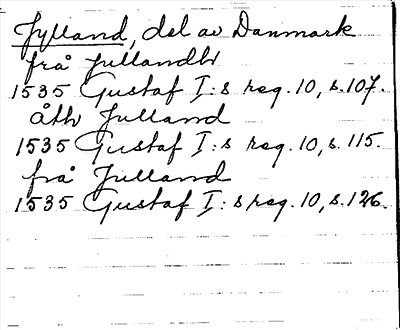 Jylland, del av Danmark
från Jullandh
1535 Gustaf I:s reg. 10, s. 107.
åth Julland
1535 Gustaf I:s reg. 10, s. 115.
frå Julland
1535 Gustaf I:s reg. 10, s. 126.